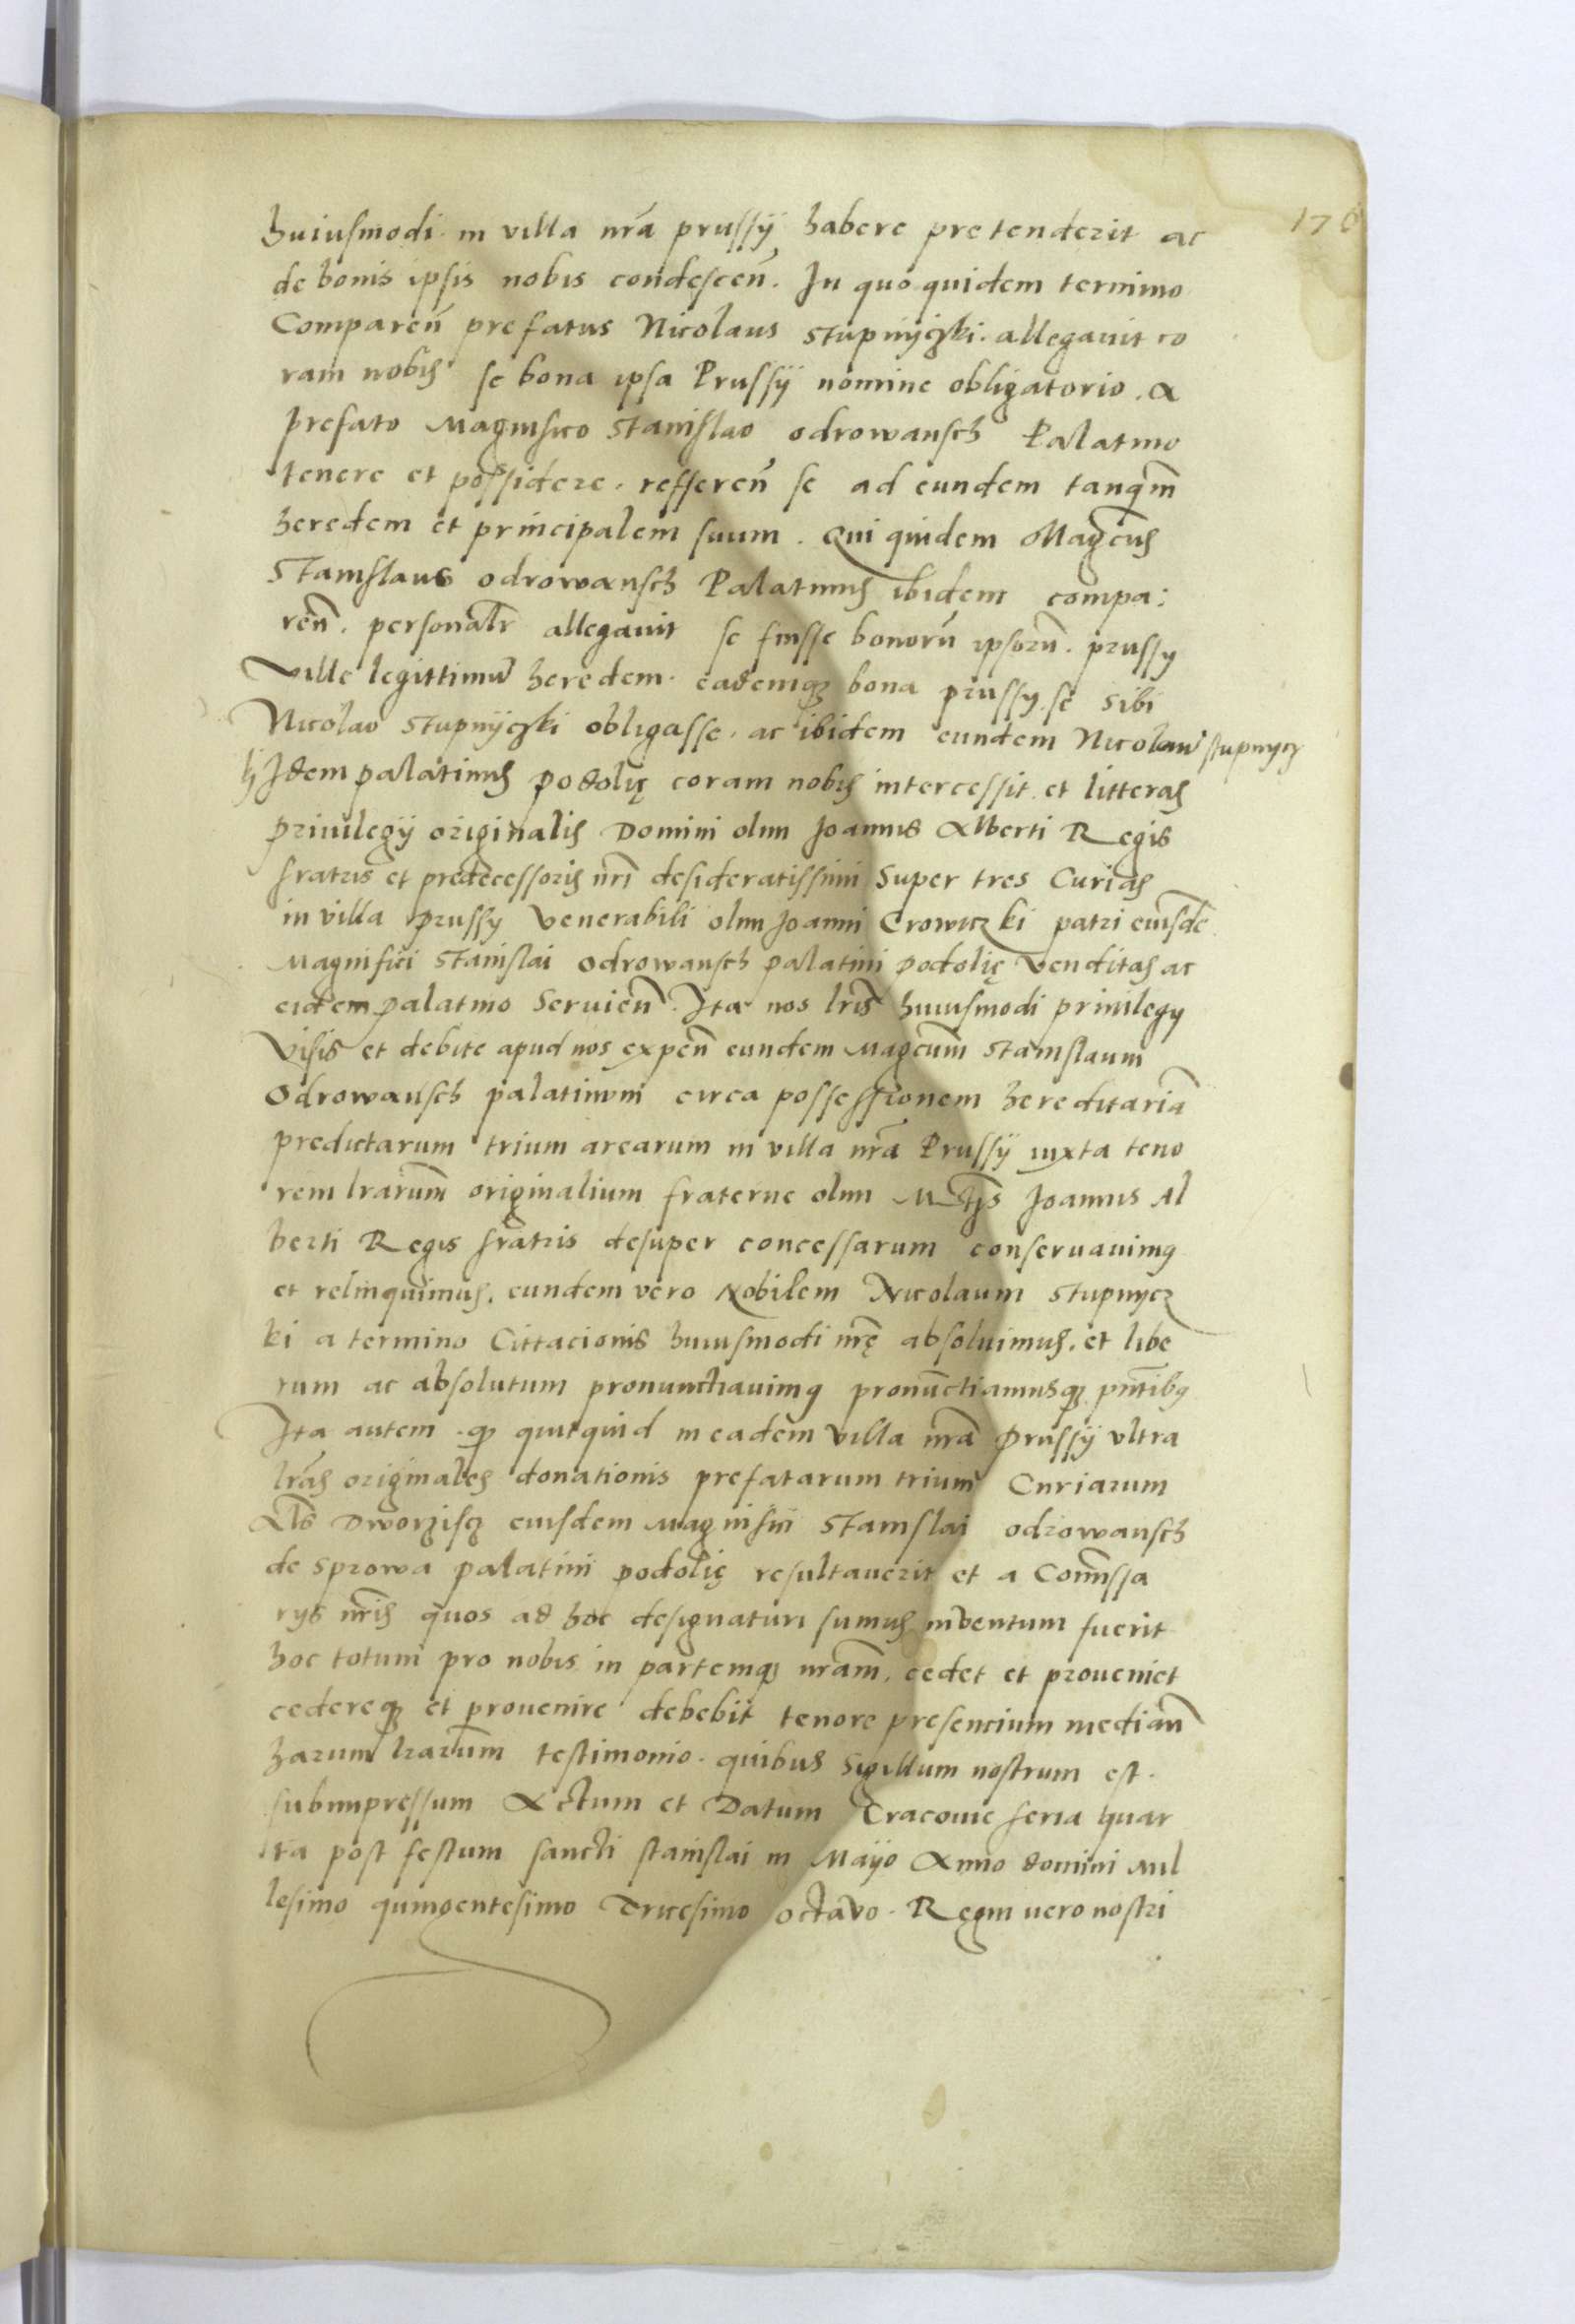 170
huiusmodi in villa nrā prussÿ habere pretenderit ac
de bonis ipsis nobis condescen̄. In quo quidem termino
Comparen̄ prefatus Nicolaus Stupnÿczki. allegauit co
ram nobis se bona ipsa Prussÿ nomine obligatorio. a
prefato Magnifico Stanislao odrowansch Palatino
tenere et possidere. refferen̄ se ad eundem tanq̄m
heredem et principalem suum. Qui quidem Magcus̄
Stanislaus odrowansch Palatinus ibidem compa:
ren̄. personalr̄ allegauit se fuisse bonorū ipsorū. prussy
Ville legittimū heredem. eademq3 bona prussy se sibi
Nicolao Stupnÿczki obligasse. ac ibidem eundem Nicolaū stupnycz
ki Idem palatinus podolię coram nobis intercessit et litteras
priuilegÿ originalis Domini olim Joannis Alberti Regis
fratris et predecessoris nrī desideratissimi Super tres Curias
in villa prussy Venerabili olim Joanni Crowiczki patri eiusdē
Magnifici Stanislai odrowansch palatini podolię Venditas ac
eidem palatino Seruien̄. Ita nos lrīs huiusmodi priuilegy
Visis et debite apud nos expen̄ eundem Magcum̄ Stanislaum
Odrowansch palatinum circa possessionem hereditariā
predictarum trium arearum in villa nrā Prussÿ iuxta teno
rem lrarum̄ originalium fraterne olim Mtīs Joannis Al
berti Regis fratris desuper concessarum conseruauimq
et relinquimus. eundem vero Nobilem Nicolaum Stupnycz
ki a termino Cittacionis huiusmodi nrē absoluimus. et libe
rum ac absolutum pronunctiauimq pronūctiamusq3 pn̄tibq
Ita autem. qp quitquid in eadem villa nrā Prussÿ vltra
lrās originales donationis prefatarum trium Curiarum
Als̄ Dworziscz eiusdem Magnifici Stanislai odrowansch
de Sprowa palatini podolię resultauerit et a Com̄issa
rÿs nrīs quos ad hoc designaturi sumus inventum fuerit
hoc totum pro nobis in partemq3 nram̄. cedet et proueniet
cedereq3 et prouenire debebit tenore presencium median̄
harum lrarum̄ testimonio. quibus Sigillum nostrum est.
subimpressum Actum et Datum Cracovie feria quar
ta post festum sancti stanislai in Mayo Anno domini Mil
lesimo quingentesimo Tricesimo octavo. Regni uero nostri